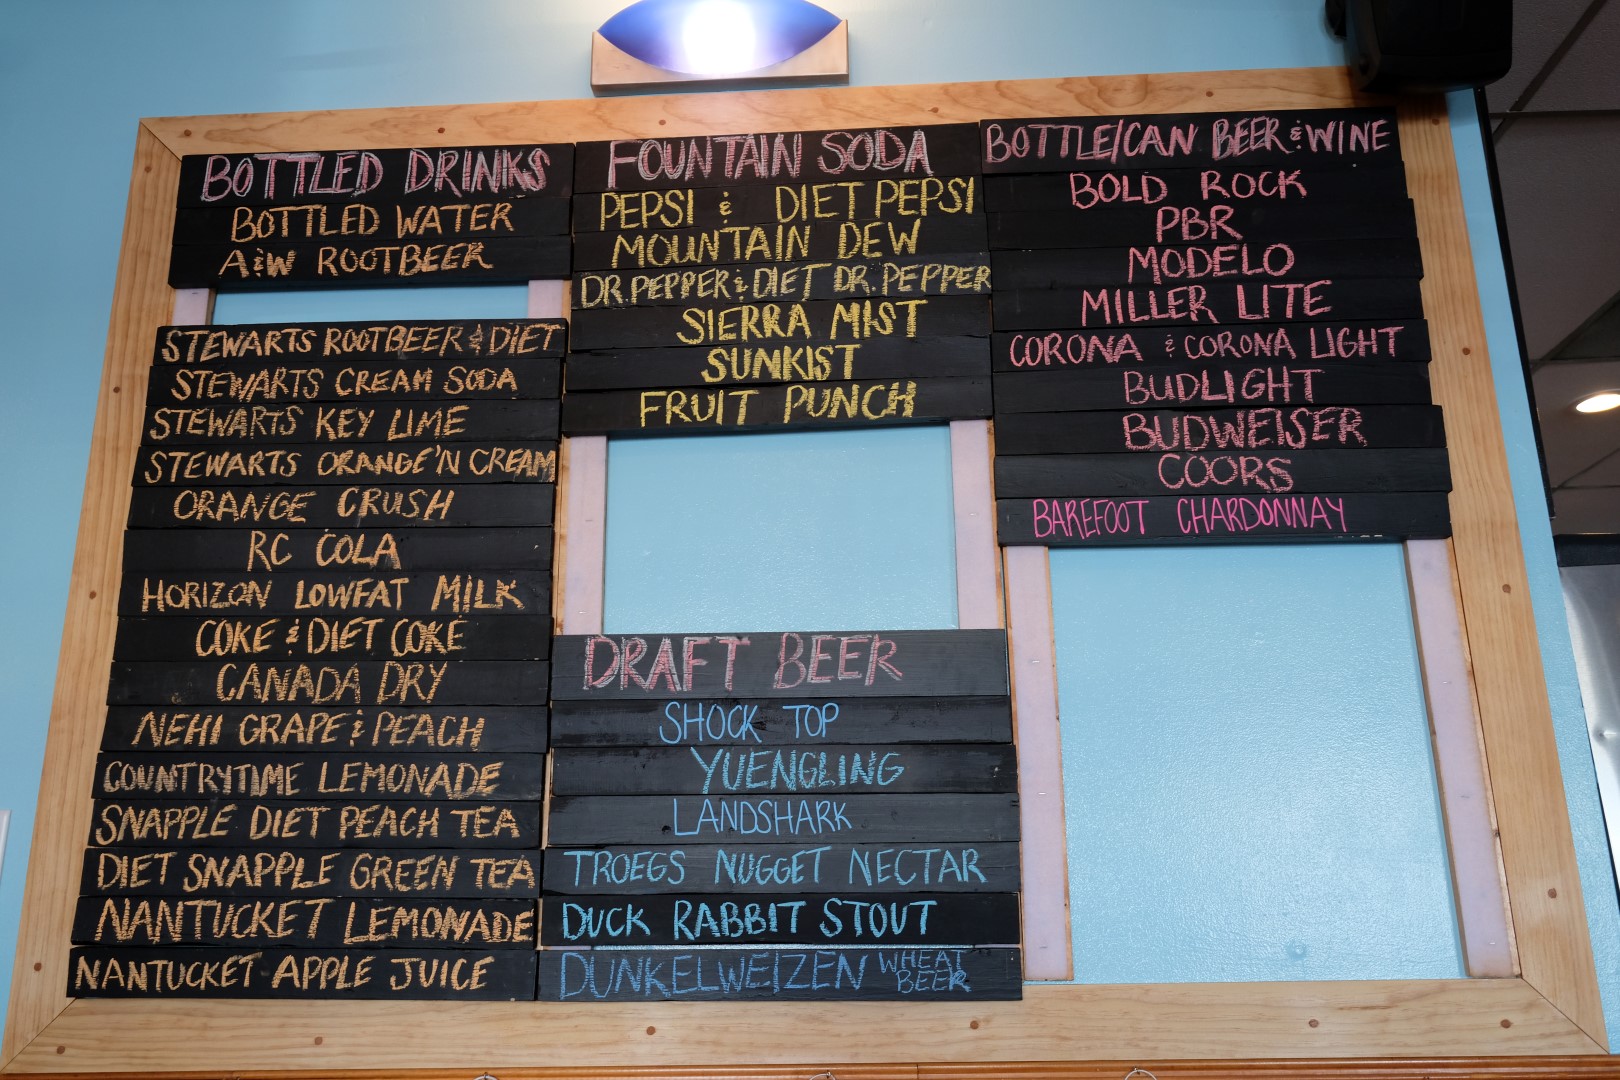 BOTTLED DRINKS
BOTTLED WATER
A&W ROOTBEER
STEWARTS ROOTBEER & DIET
STEWARTS CREAM SODA
STEWARTS KEY LIME
STEWARTS ORANGE'N CREAM
ORANGE CRUSH
RC COLA
HORIZON LOWFAT MILK
COKE & DIET COKE
CANADA DRY
NEHI GRAPE & PEACH
COUNTRYTIME LEMONADE
SNAPPLE DIET PEACH TEA
DIET SNAPPLE GREEN TEA
NANTUCKET LEMONADE
NANTUCKET APPLE JUICE
FOUNTAIN SODA
PEPSI & DIET PEPSI
MOUNTAIN DEW
DR. PEPPER & DIET DR. PEPPER
SIERRA MIST
SUNKIST
FRUIT PUNCH
DRAFT BEER
SHOCK TOP
YUENGLING
LANDSHARK
TROEGS NUGGET NECTAR
DUCK RABBIT STOUT
DUNKELWEIZEN WHEAT
BEER
BOTTLE/CAN BEER & WINE
BOLD ROCK
PBR
MODELO
MILLER LITE
CORONA & CORONA LIGHT
BUDLIGHT
BUDWEISER
COORS
BAREFOOT CHARDONNAY